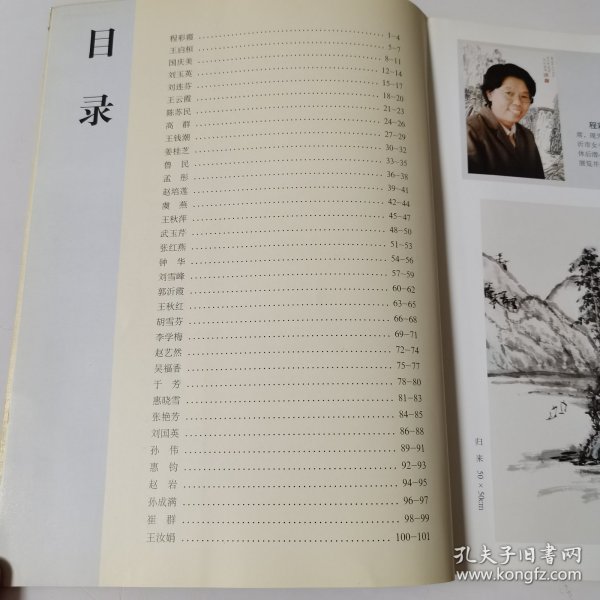 目录
程彩霞 1-4
王启桓 5-7
国庆美 8-11
刘玉英 12-14
刘连芬 15-17
王云霞 18-20
陈苏民 21-23
高群 24-26
王钱潮 27-29
姜桂芝 30-32
鲁民 33-35
孟彤 36-38
赵培莲 39-41
虞燕 42-44
王秋萍 45-47
武玉芹 48-50
张红燕 51-53
钟华 54-56
刘雪峰 57-59
郭沂霞 60-62
王秋红 63-65
胡雪芬 66-68
李学梅 69-71
赵艺然 72-74
吴福香 75-77
于芳 78-80
惠晓雪 81-83
张艳芳 84-85
刘国英 86-88
孙伟 89-91
惠钧 92-93
赵岩 94-95
孙成满 96-97
崔群 98-99
王汝娟 100-101
程彩
沂市女
展览并
归来 50×50cm
孔夫子旧书网
www.kongfz.com